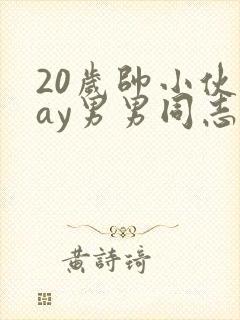 20歲帥小伙
ay男男同志
黃詩琦